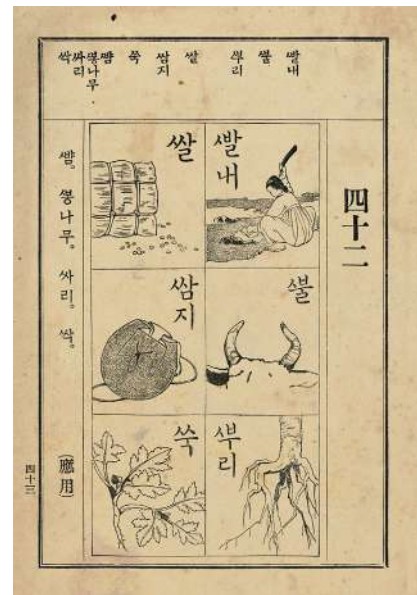 ᄲᅡᆯ내
ᄲᅮᆯ
ᄲᅮ리
쌀
쌈지
쑥
ᄲᅣᆷ
ᄲᅩᆼ나무
싸리
싹
四十二
ᄲᅡᆯ내
ᄲᅮᆯ
ᄲᅮ리
쌀
쌈지
쑥
ᄲᅣᆷ。ᄲᅩᆼ나무。싸리。싹。(應用)
四十三